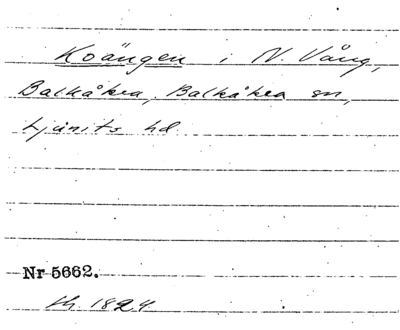 Koängen i N. Vång,
Balkåkra, Balkåkra sn,
Ljunits hd
Nr 5662.
1824